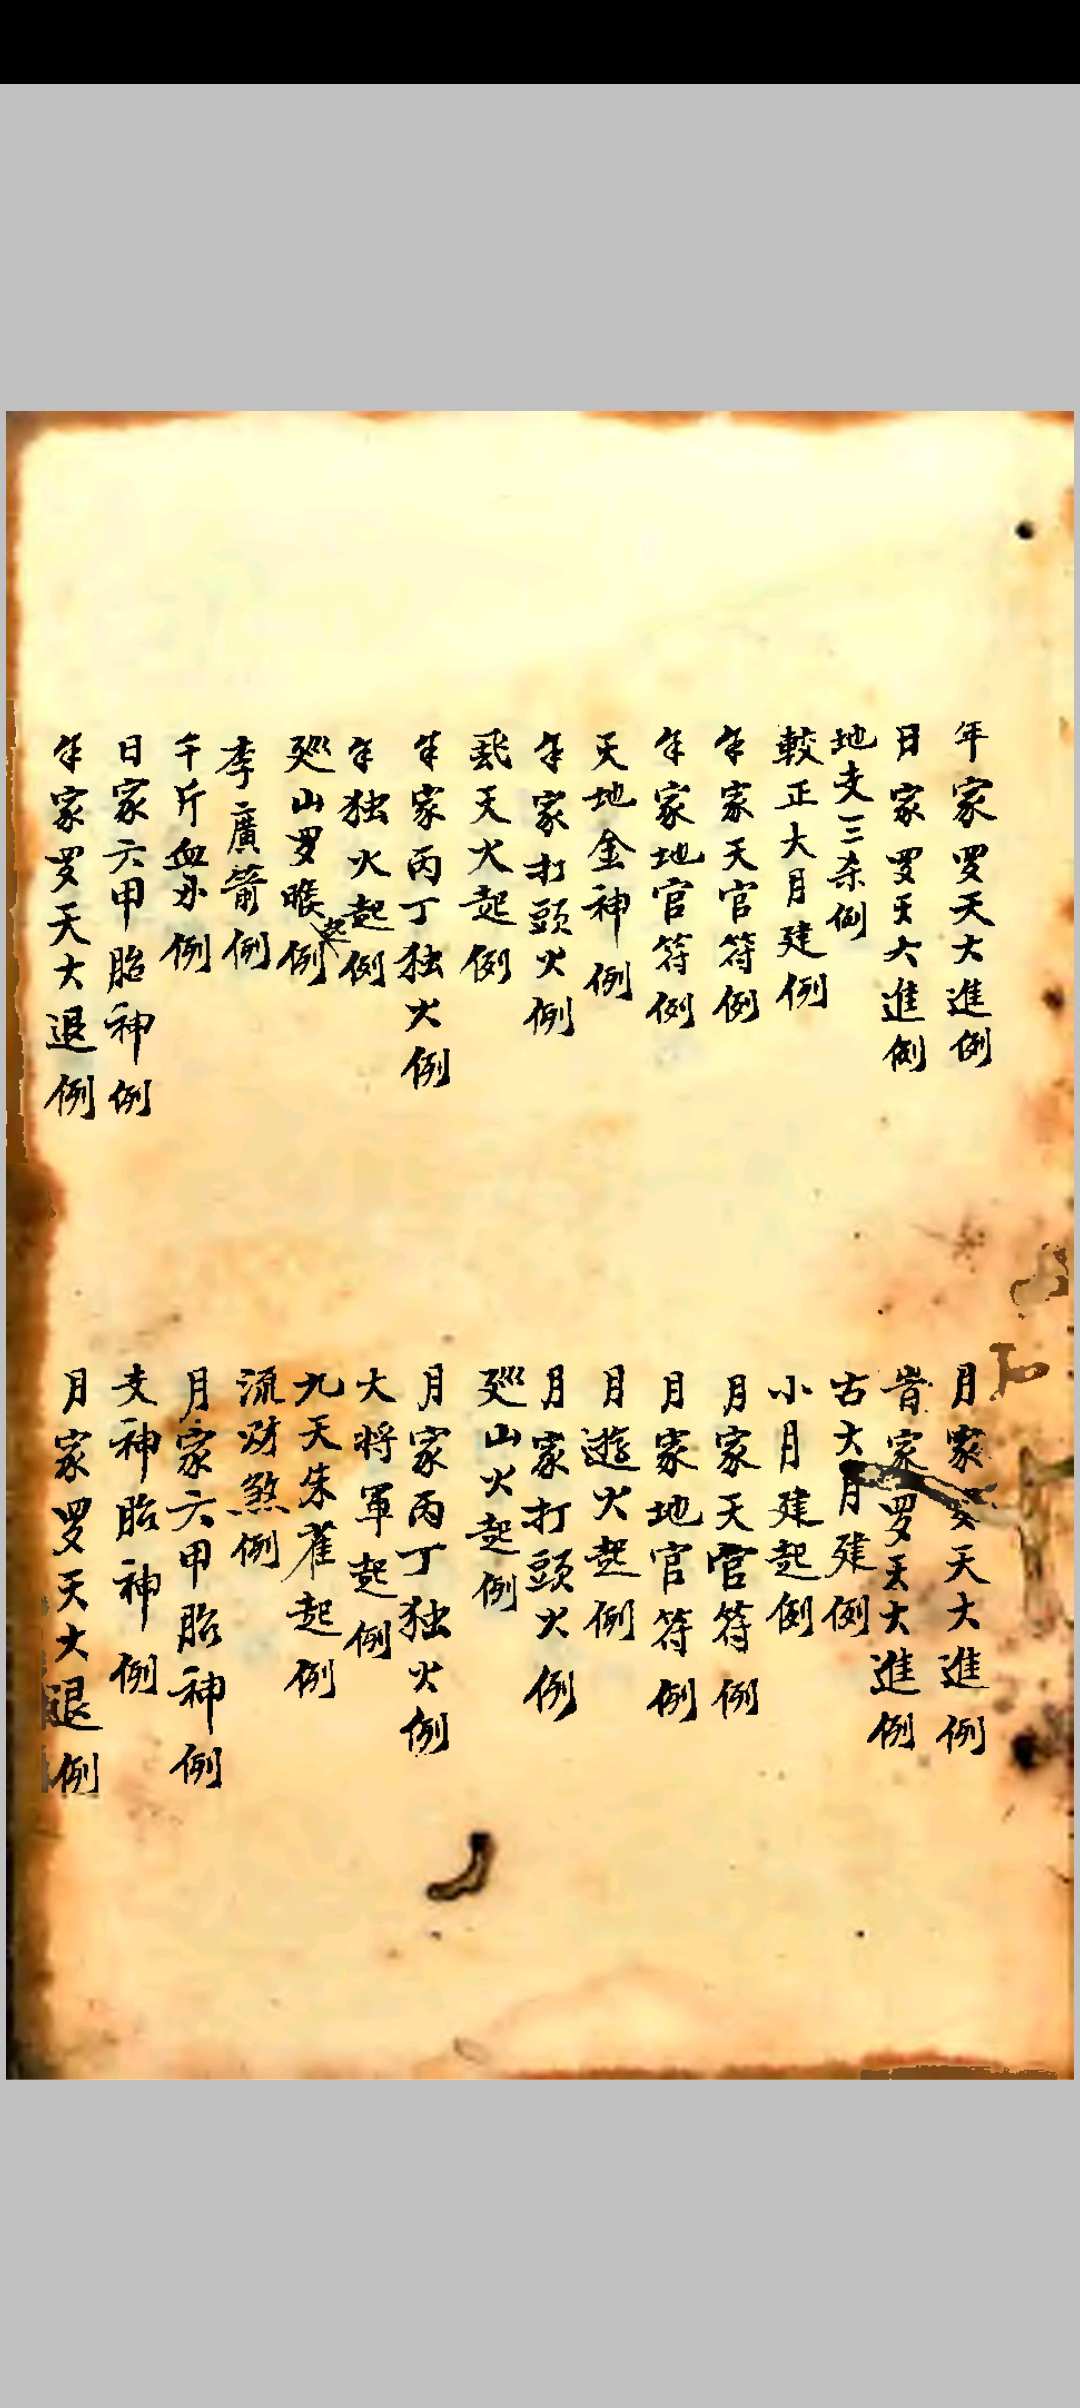 年家罗天大進例
日家罗天大進例
地支三杀例
較正大月建例
年家天官符例
年家地官符例
天地金神例
年家打頭火例
飛天火起例
年家丙丁独火例
年独火起例
廵山罗睺起例
李廣箭例
千斤血刃例
日家六甲胎神例
年家罗天大退例
月家罗天大進例
時家罗天大進例
古大月建例
小月建起例
月家天官符例
月家地官符例
月遊火起例
月家打頭火例
廵山火起例
月家丙丁独火例
大将軍起例
九天朱雀起例
流财煞例
月家六甲胎神例
支神胎神例
月家罗天大退例